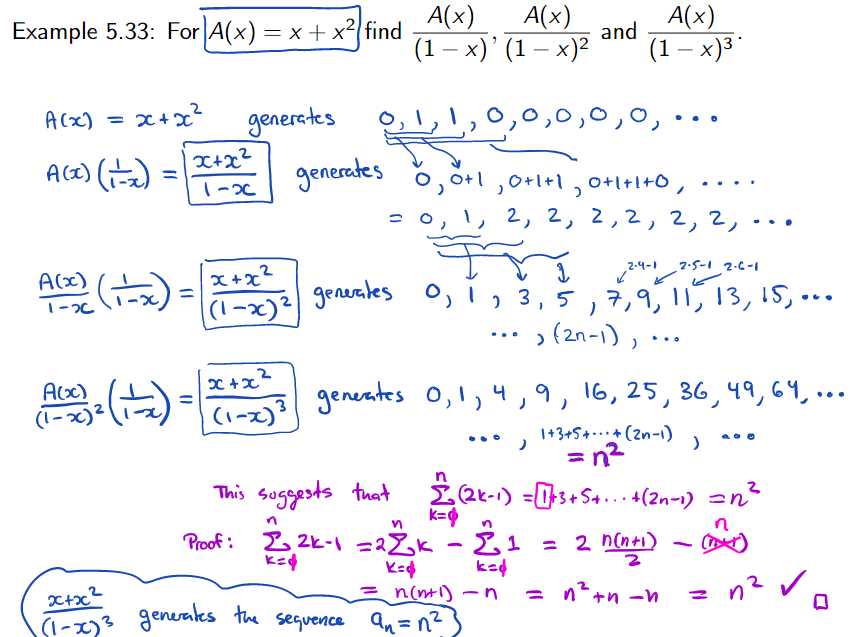 Example 5.33: For A(x) = x + x² find A(x)/(1 − x), A(x)/(1 − x)² and A(x)/(1 − x)³.
A(x) = x+x² generates 0, 1, 1, 0, 0, 0, 0, 0, ...
A(x) (1/(1-x)) = (x+x²)/(1-x) generates 0, 0+1, 0+1+1, 0+1+1+0, ....
= 0, 1, 2, 2, 2, 2, 2, 2, ...
2·4-1 2·5-1 2·6-1
A(x)/(1-x) (1/(1-x)) = (x+x²)/(1-x)² generates 0, 1, 3, 5, 7, 9, 11, 13, 15, ...
..., (2n-1), ...
A(x)/(1-x)² (1/(1-x)) = (x+x²)/(1-x)³ generates 0, 1, 4, 9, 16, 25, 36, 49, 64, ...
..., 1+3+5+...+(2n-1), ...
= n²
This suggests that Σ_{k=1}^{n} (2k-1) = 1+3+5+...+(2n-1) = n²
Proof: Σ_{k=1}^{n} 2k-1 = 2 Σ_{k=1}^{n} k - Σ_{k=1}^{n} 1 = 2 n(n+1)/2 - n
= n(n+1) - n = n²+n-n = n² ✓ □
(x+x²)/(1-x)³ generates the sequence aₙ = n²